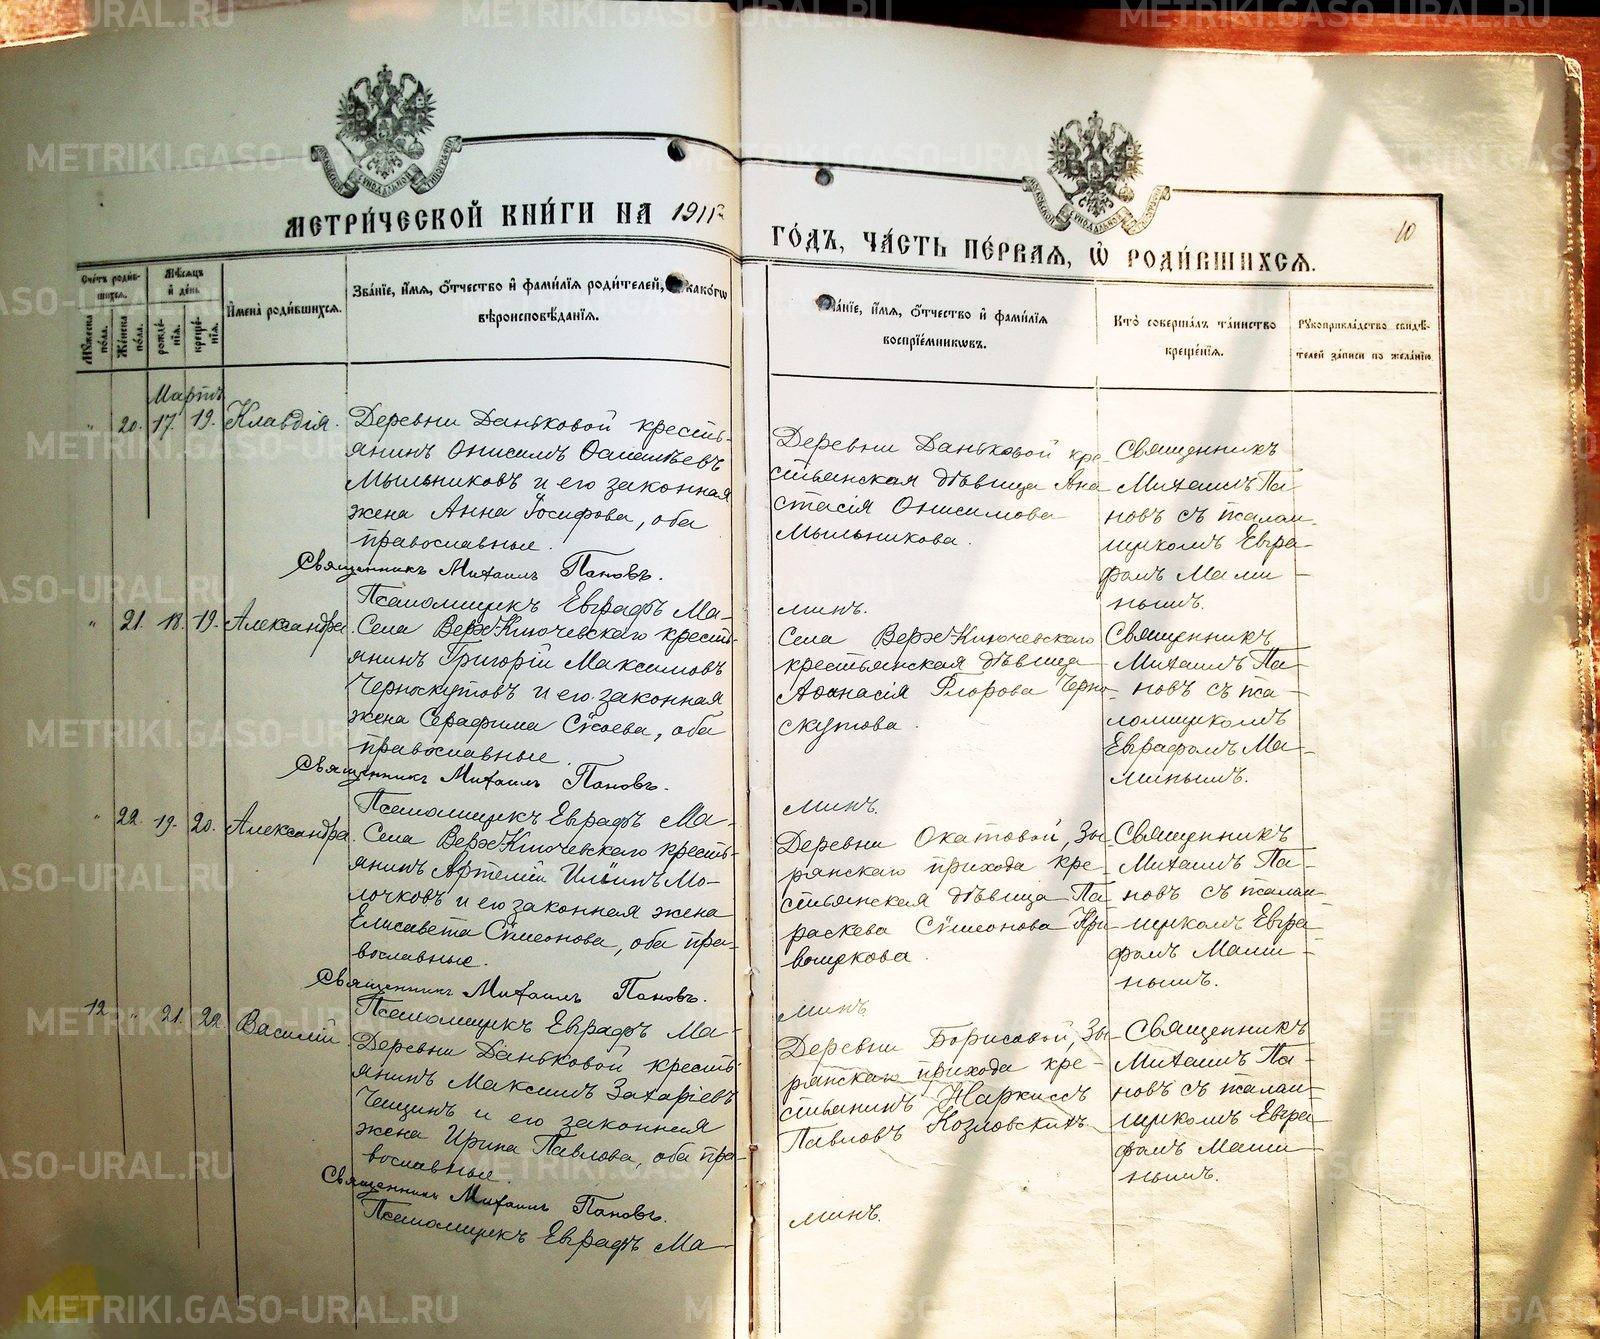 METRIKI.GASO-URAL.RU
МЕТРИ́ЧЕСКОЙ КНИ́ГИ НА 1911 г.
ГО́ДЪ, ЧА́СТЬ ПЕ́РВАЯ, Ѡ҆ РОДИ́ВШИХСЯ.
10
Сче́тъ роди́вшихся.
Мꙋ́жеска по́ла.
Же́нска по́ла.
Мѣ́сяцъ и҆ де́нь
рожде́нїя.
креще́нїя.
И҆мена̀ роди́вшихся.
Зва́нїе, и҆́мя, ѻ҆́тчество и҆ фами́лїя роди́телей, и҆ како́гѡ
вѣроисповѣ́данїя.
Зва́нїе, и҆́мя, ѻ҆́тчество и҆ фами́лїя
воспрїе́мникѡвъ.
Кто̀ соверша́лъ та́инство
креще́нїя.
Рꙋкоприкла́дство свидѣ́-
телей за́писи по жела́нїю
Мартъ
" 20. 17. 19. Клавдія.
Деревни Даньковой кресть-
янинъ Онисимъ
Мыльниковъ и его законная
жена Анна Іосифова, оба
православные.
Священникъ Михаилъ Пановъ.
Псаломщикъ Евграфъ Ма-
минъ.
Деревни Даньковой кре-
стьянская дѣвица Ана
стасія Онисимова
Мыльникова.
Священникъ
Михаилъ Па
новъ съ псалом
щикомъ Евгра-
фомъ Мами-
нымъ.
" 21. 18. 19. Александра
Села Верх-Ключевскаго кресть-
янинъ Григорій Максимовъ
Черноскутовъ и его законная
жена Серафима Сѵсоева, оба
православные.
Священникъ Михаилъ Пановъ.
Псаломщикъ Евграфъ Ма-
минъ.
Села Верх-Ключевскаго
крестьянская дѣвица
Аѳанасія Флорова Черно-
скутова.
Священникъ
Михаилъ Па-
новъ съ пса-
ломщикомъ
Евграфомъ Ма-
минымъ.
" 22. 19. 20. Александра
Села Верх-Ключевскаго кресть-
янинъ Артемій Ильинъ Мо-
лочковъ и его законная жена
Елисавета Сѵмеонова, оба пра-
вославные.
Священникъ Михаилъ Пановъ.
Псаломщикъ Евграфъ Ма-
минъ.
Деревни Окатовой, Зы-
рянскаго прихода кре-
стьянская дѣвица Па-
раскева Сѵмеонова Кри-
вощекова.
Священникъ
Михаилъ Па-
новъ съ псалом-
щикомъ Евгра-
фомъ Мами-
нымъ.
12 " 21. 22. Василій
Деревни Даньковой кресть-
янинъ Максимъ Захаріевъ
и его законная
жена Ирина Павлова, оба пра-
вославные.
Священникъ Михаилъ Пановъ.
Псаломщикъ Евграфъ Ма-
минъ.
Деревни Борисовой, Зы-
рянскаго прихода кре-
стьянинъ Наркиссъ
Павловъ Козловскихъ
Священникъ
Михаилъ Па-
новъ съ псалом-
щикомъ Евгра-
фомъ Мами-
нымъ.